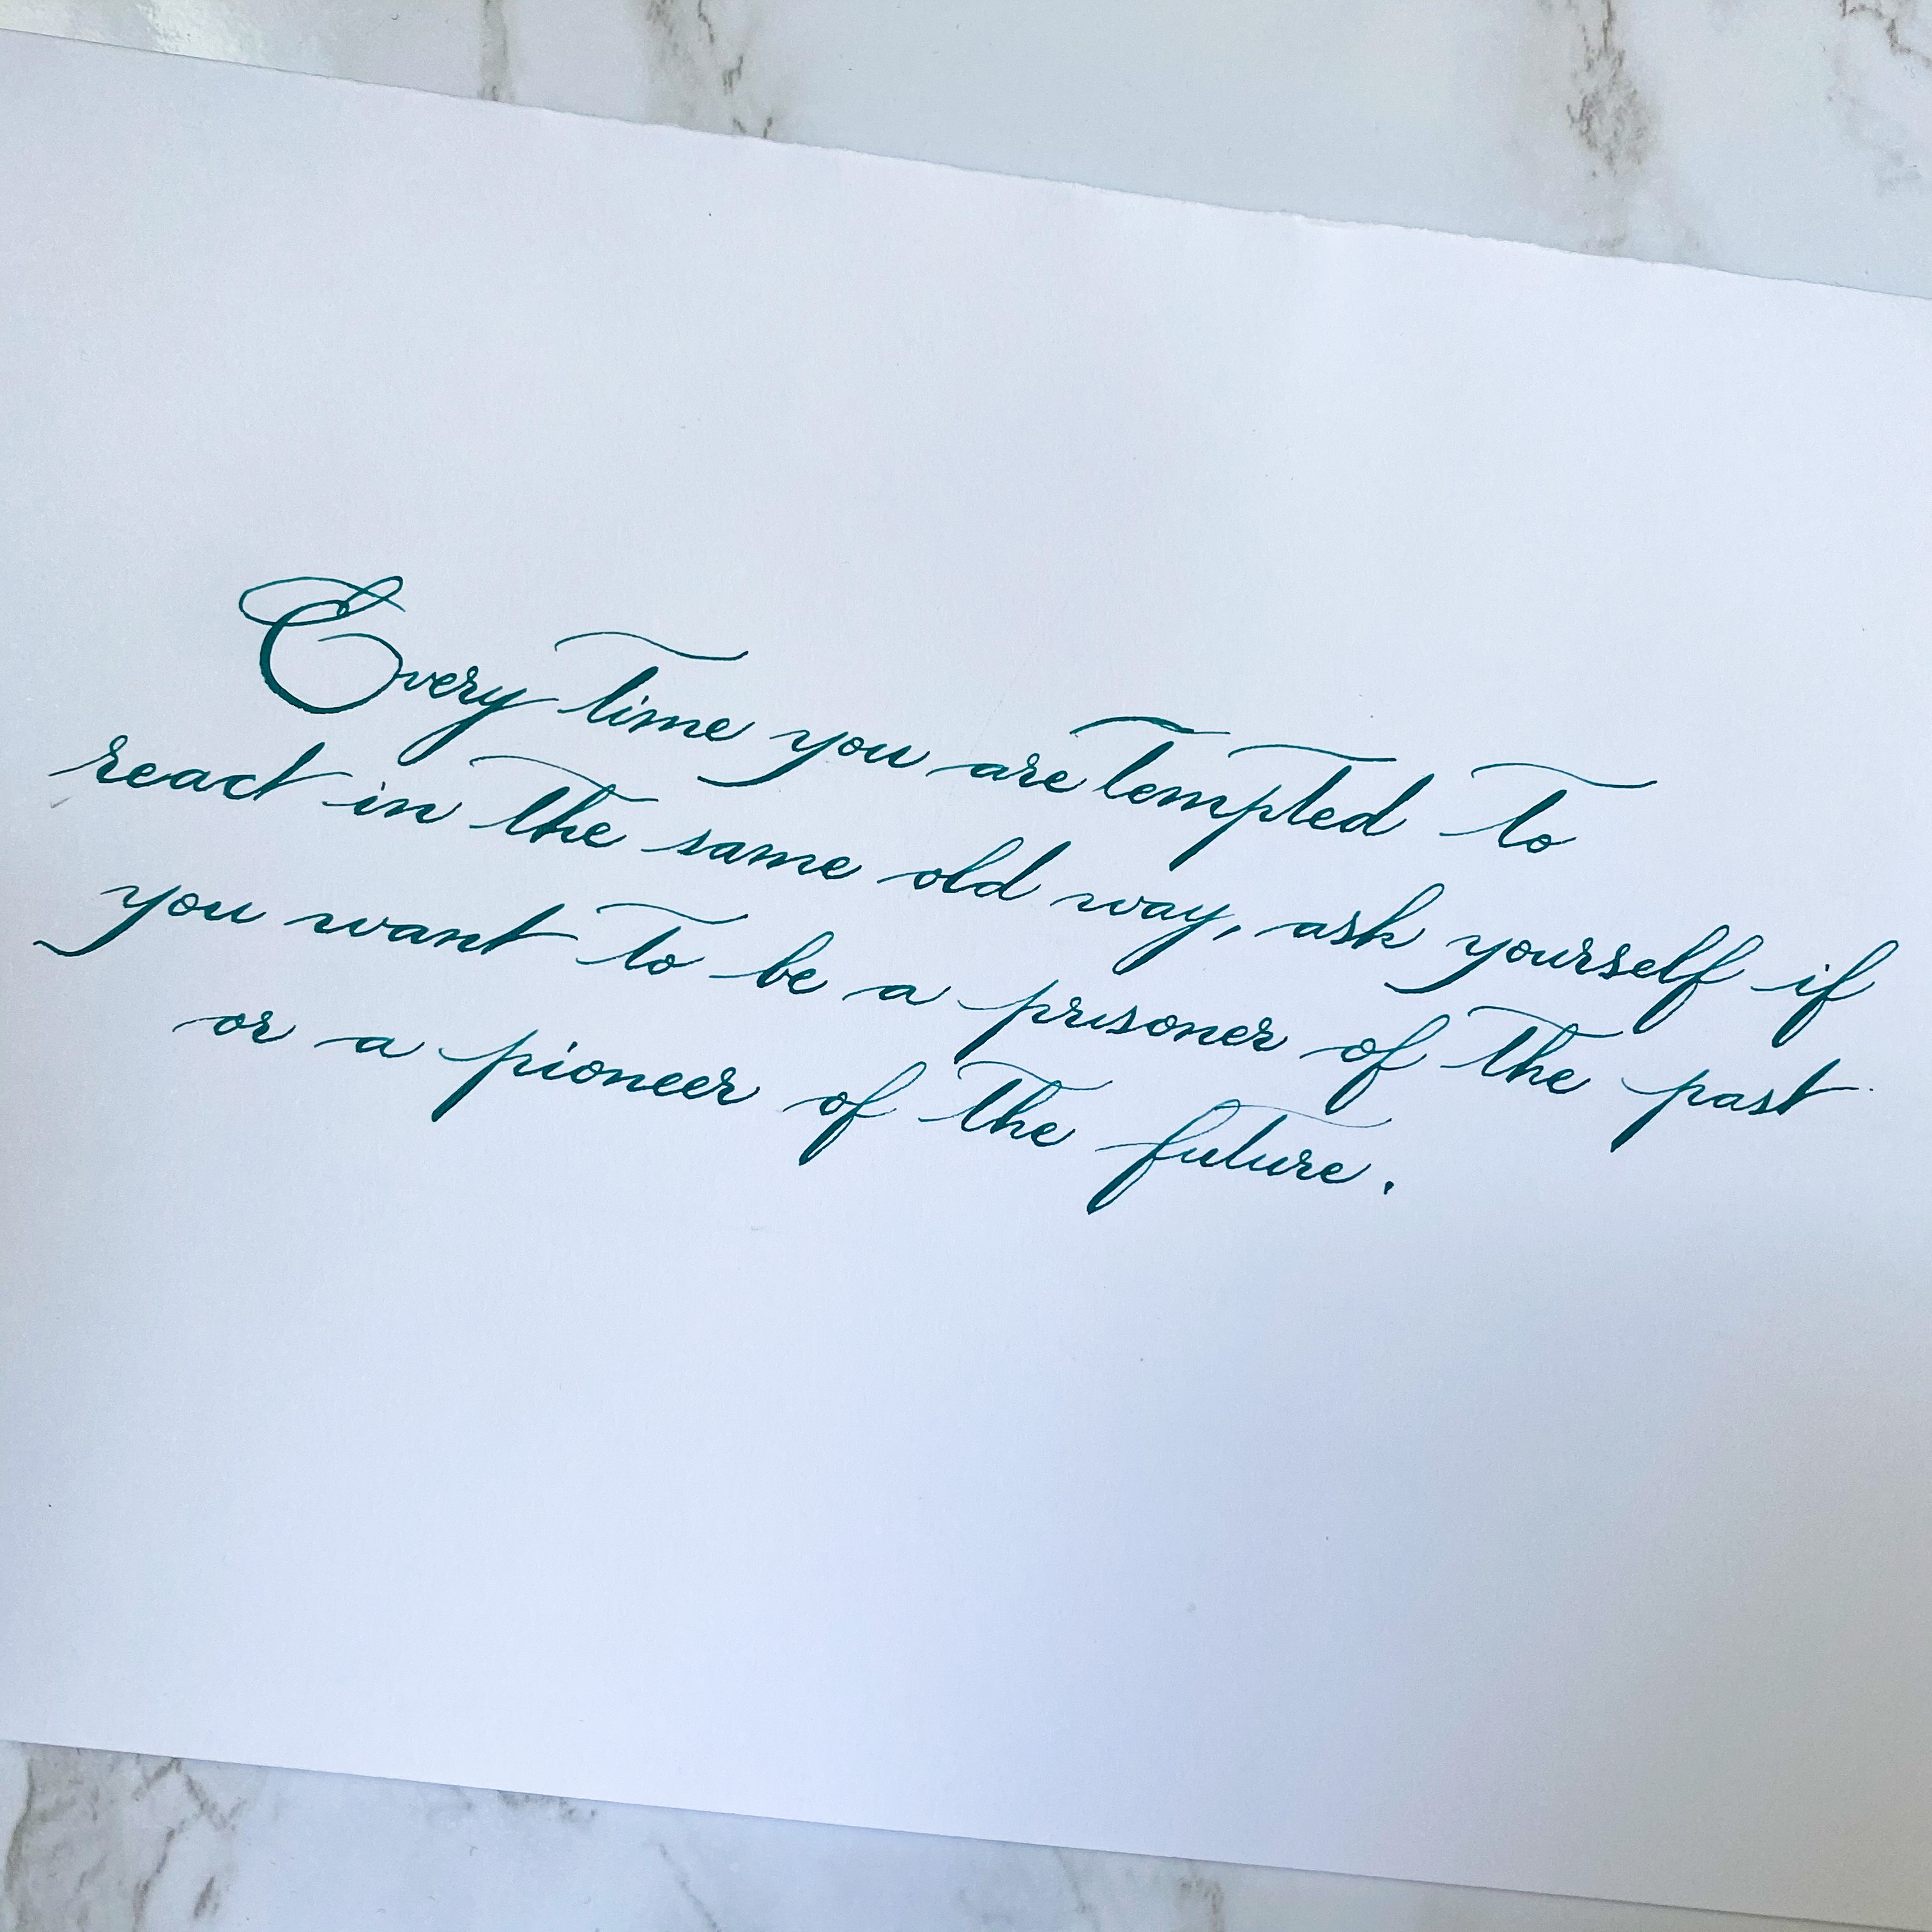 Every time you are tempted to
react in the same old way, ask yourself if
you want to be a prisoner of the past
or a pioneer of the future.